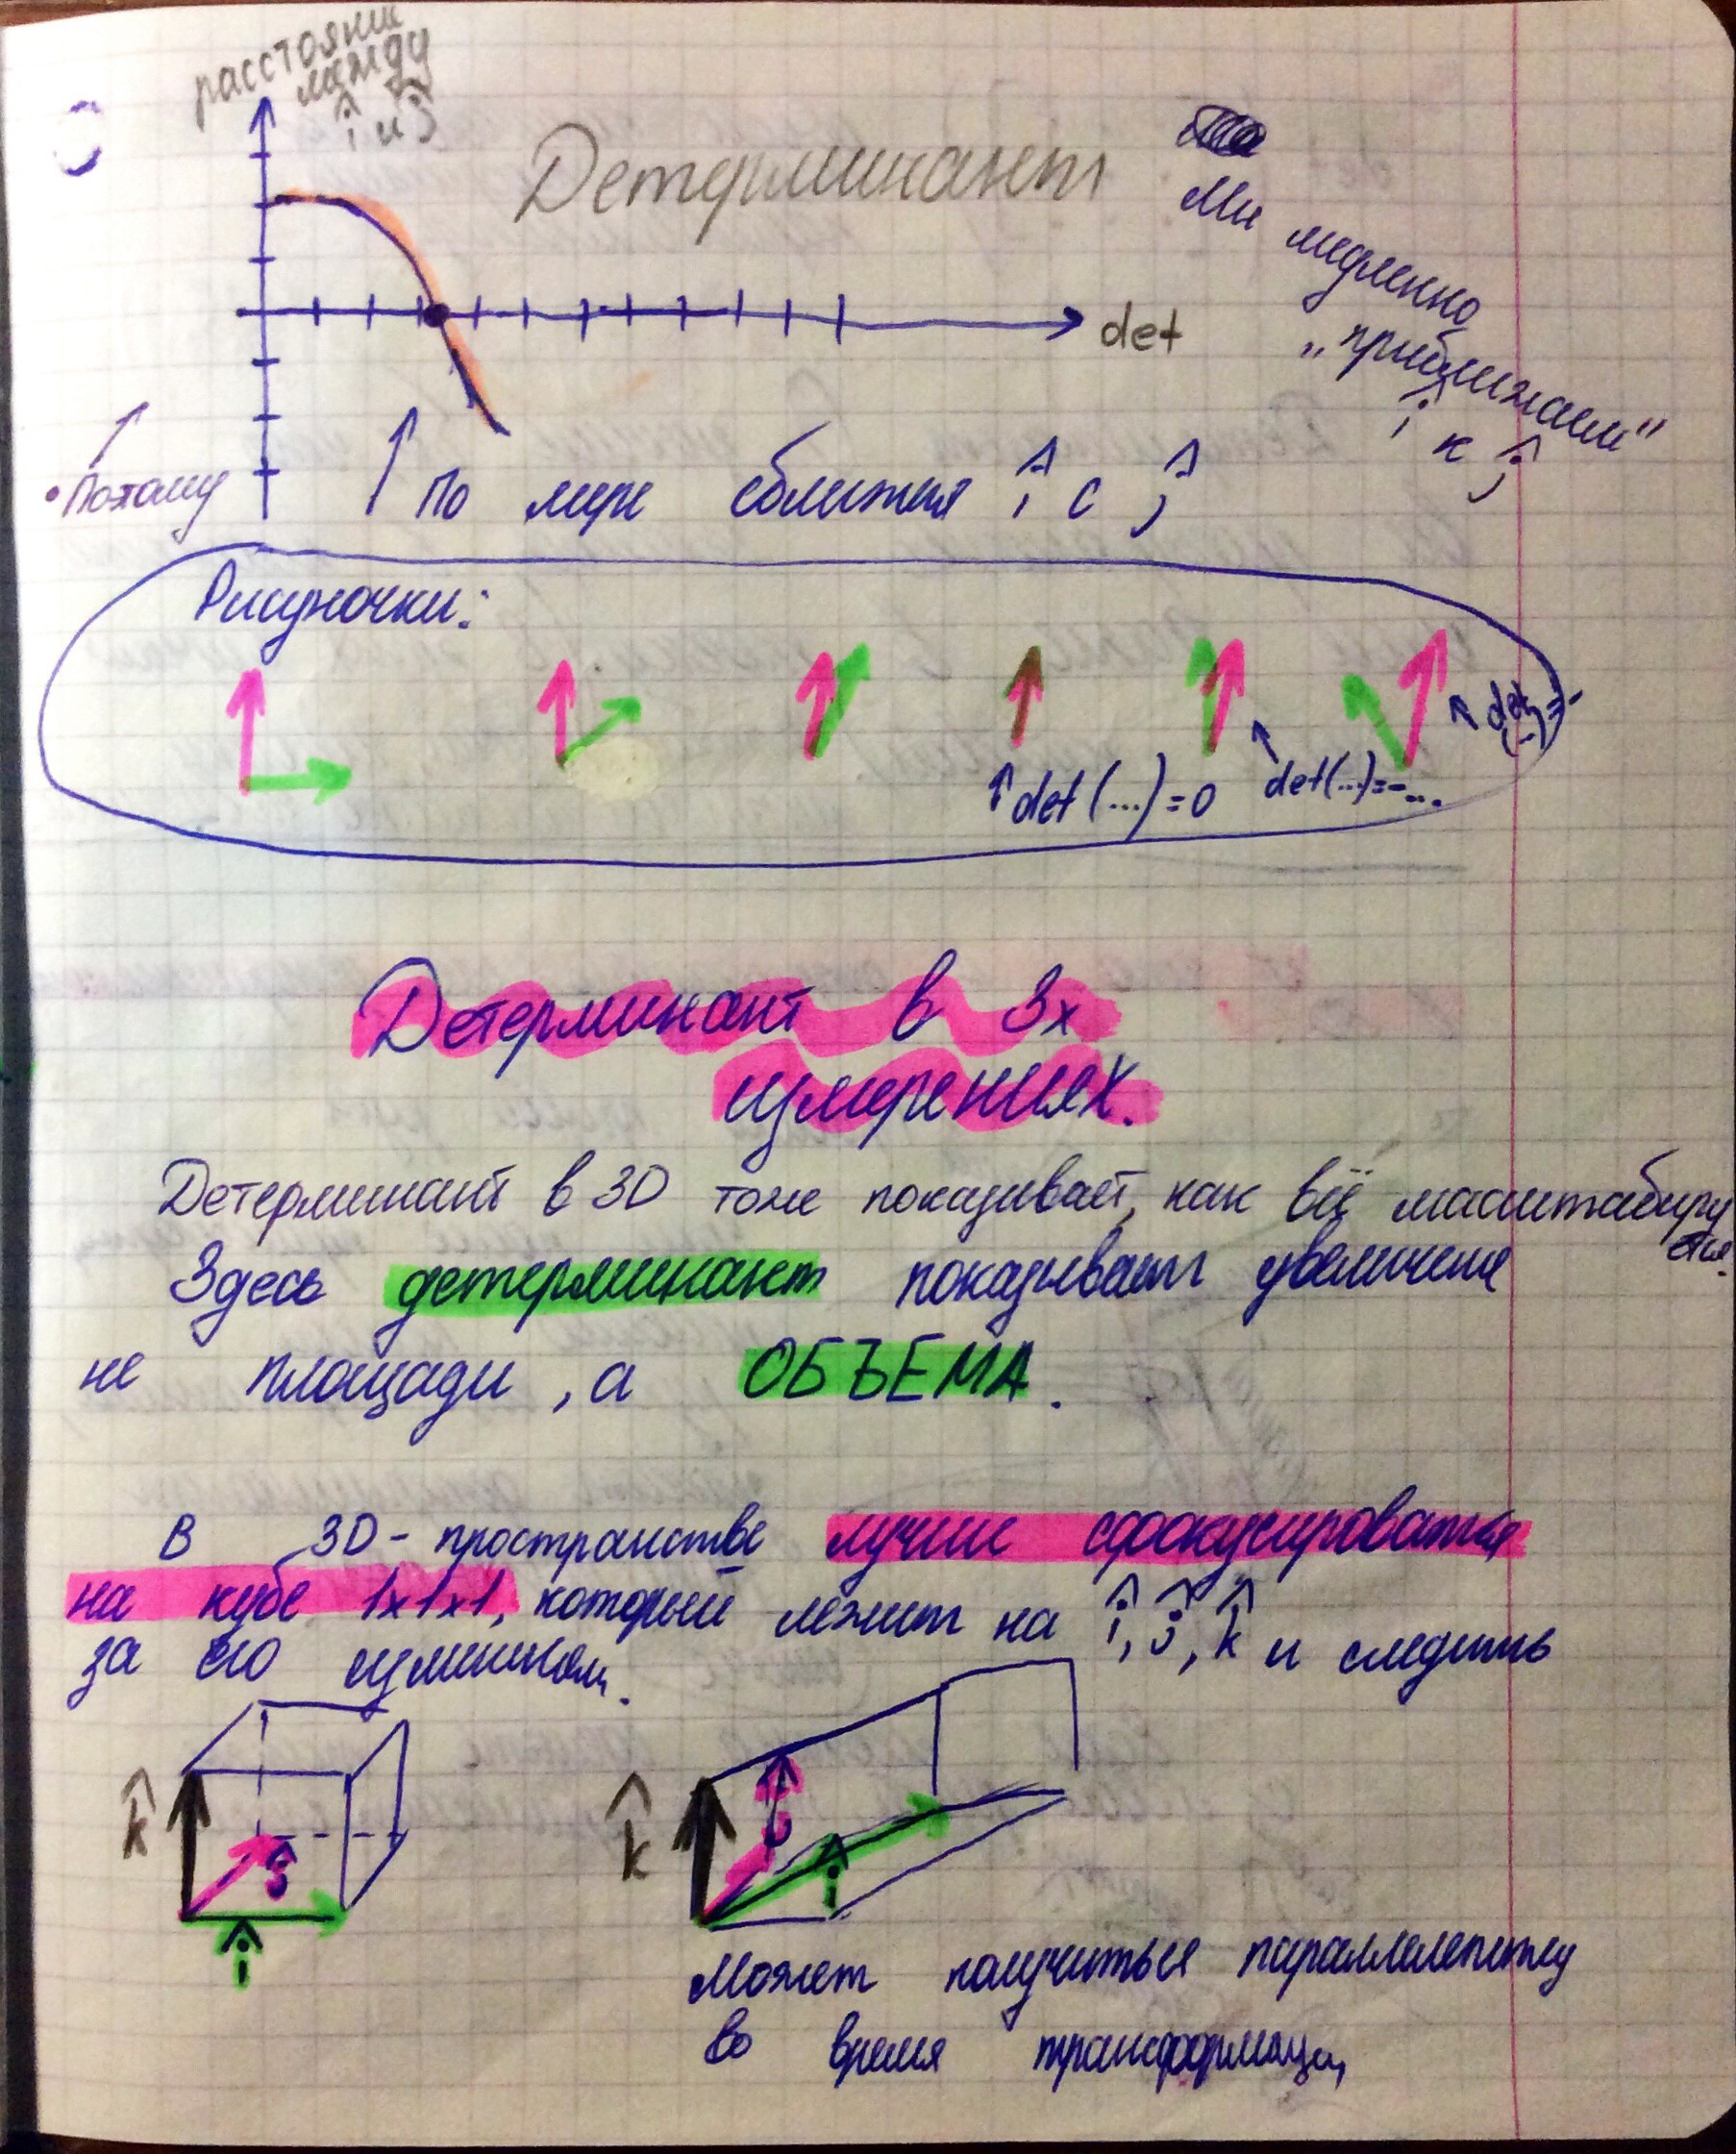 расстояни
между
î и ĵ
Детерминант
Мы медленно
„приближаем"
î к ĵ
det
• Потому
По мере сближения î с ĵ
Рисуночки:
det(...)=0
det(...)=-...
det(...)=-
Детерминант в 3х
измерениях.
Детерминант в 3D тоже показывает, как всё масштабиру
ется.
Здесь детерминант показывает увеличение
не площади, а ОБЪЕМА.
В 3D-пространстве лучше сфокусироваться
на кубе 1x1x1, который лежит на î, ĵ, k̂ и следить
за его изменением.
k̂
ĵ
î
k̂
ĵ
î
Может получиться параллелепипед
во время трансформации